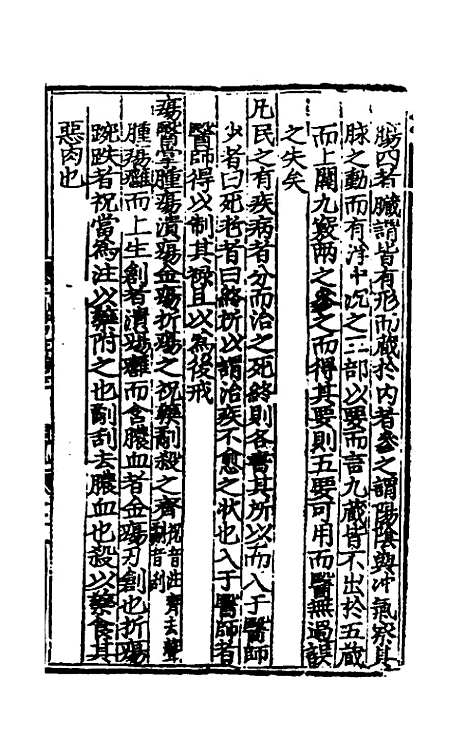 腸四者臟謂皆有形而藏於内者參之謂陽陰與冲氣察其
脉之動而有浮中沉之三部以要而言九藏皆不出於五藏
而上關九竅兩之參之而得其要則五要可用而醫無過誤
之失矣
凡民之有疾病者分而治之死終則各書其所以而入于醫師
少者曰死老者曰終所以謂治疾不愈之状也入于醫師者
醫師得以制其禄且以為後戒
瘍醫掌腫瘍潰瘍金瘍折瘍之祝藥劀殺之齊祝音注劀音刮齊去聲
腫瘍癰而上生創者潰瘍癰而含膿血者金瘍刃創也折瘍
踠跌者祝當為注以藥附之也劀刮去膿血也殺以藥食其
惡肉也